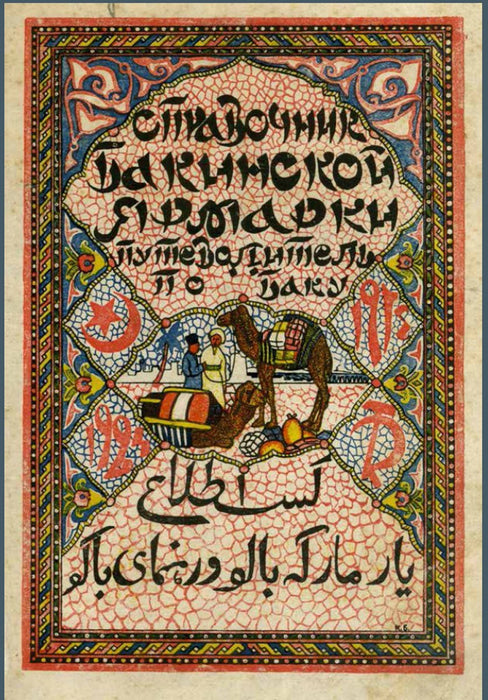 СПРАВОЧНИК
БАКИНСКОЙ
ЯРМАРКИ
ПУТЕВОДИТЕЛЬ
ПО БАКУ
1924
اطلاع
یارمارکه باکو ورهنمای باکو